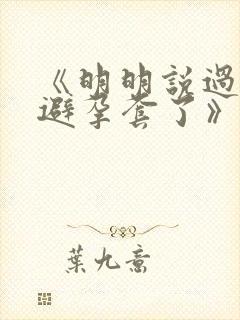 《明明說過
避孕套了》
葉九意